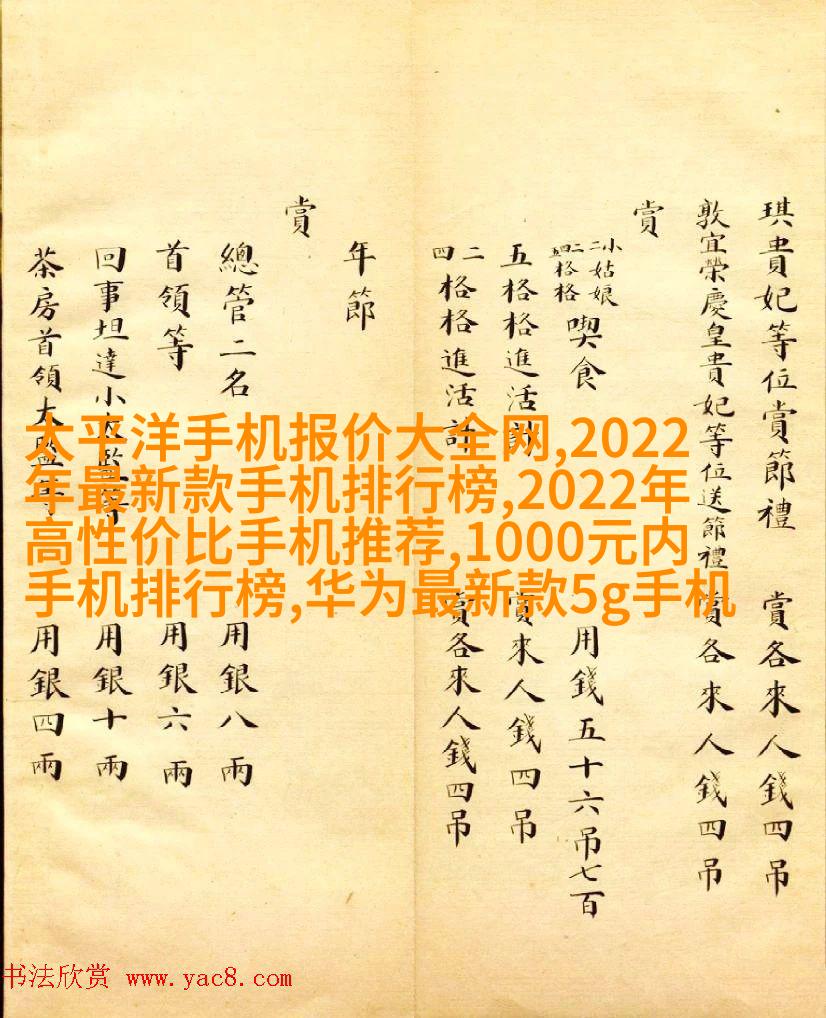 琪貴妃等位賞節禮 賞各來人錢四吊
敦宜榮慶皇貴妃等位送節禮 賞各來人錢四吊
賞
小姑娘二格格四格格喫食 用錢五十六吊七百
五格格進活計 賞來人錢四吊
二四格格進活計 賞各來人錢四吊
年節
賞
總管二名 用銀八兩
首領等 用銀六兩
回事坦達小太監等 用銀十兩
茶房首領太監等 用銀四兩
太平洋手机报价大全网,2022
年最新款手机排行榜,2022年
高性价比手机推荐,1000元内
手机排行榜,华为最新款5g手机
书法欣赏 www.yac8.com